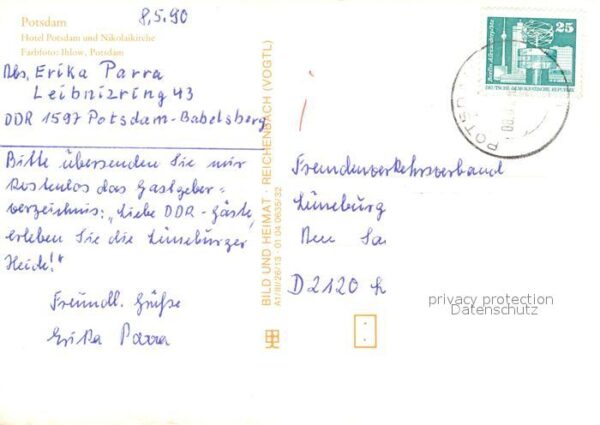 8.5.90
Potsdam
Hotel Potsdam und Nikolaikirche
Farbfoto: Ihlow, Potsdam
Abs. Erika Parra
Leibnizring 43
DDR 1597 Potsdam-Babelsberg
Bitte übersenden Sie mir
kostenlos das Gastgeber-
verzeichnis: „Liebe DDR-Gäste,
erleben Sie die Lüneburger
Heide!"
Freundl. Grüße
Erika Parra
BILD UND HEIMAT · REICHENBACH (VOGTL)
A1/III/26/13 · 01 04 0635/32
25
Berlin, Alexanderplatz
DEUTSCHE DEMOKRATISCHE REPUBLIK
POTSD
Fremdenverkehrsverband
Lüneburg
D 2120
privacy protection
Datenschutz